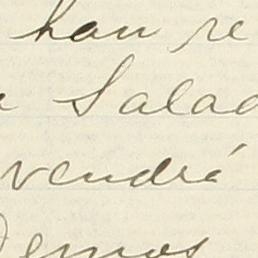 han re
a Salad
vendrá
Demos